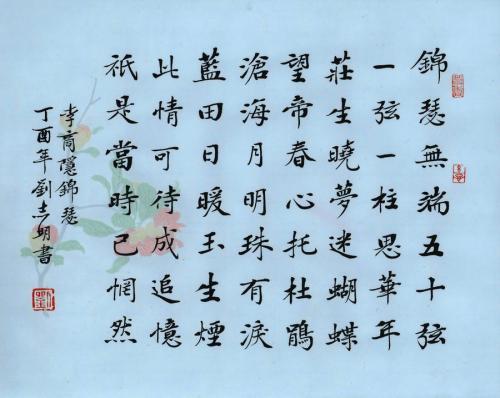 錦瑟無端五十弦
一弦一柱思華年
莊生曉夢迷蝴蝶
望帝春心托杜鵑
滄海月明珠有淚
藍田日暖玉生煙
此情可待成追憶
祇是當時已惘然
李商隱錦瑟
丁酉年劉志明書